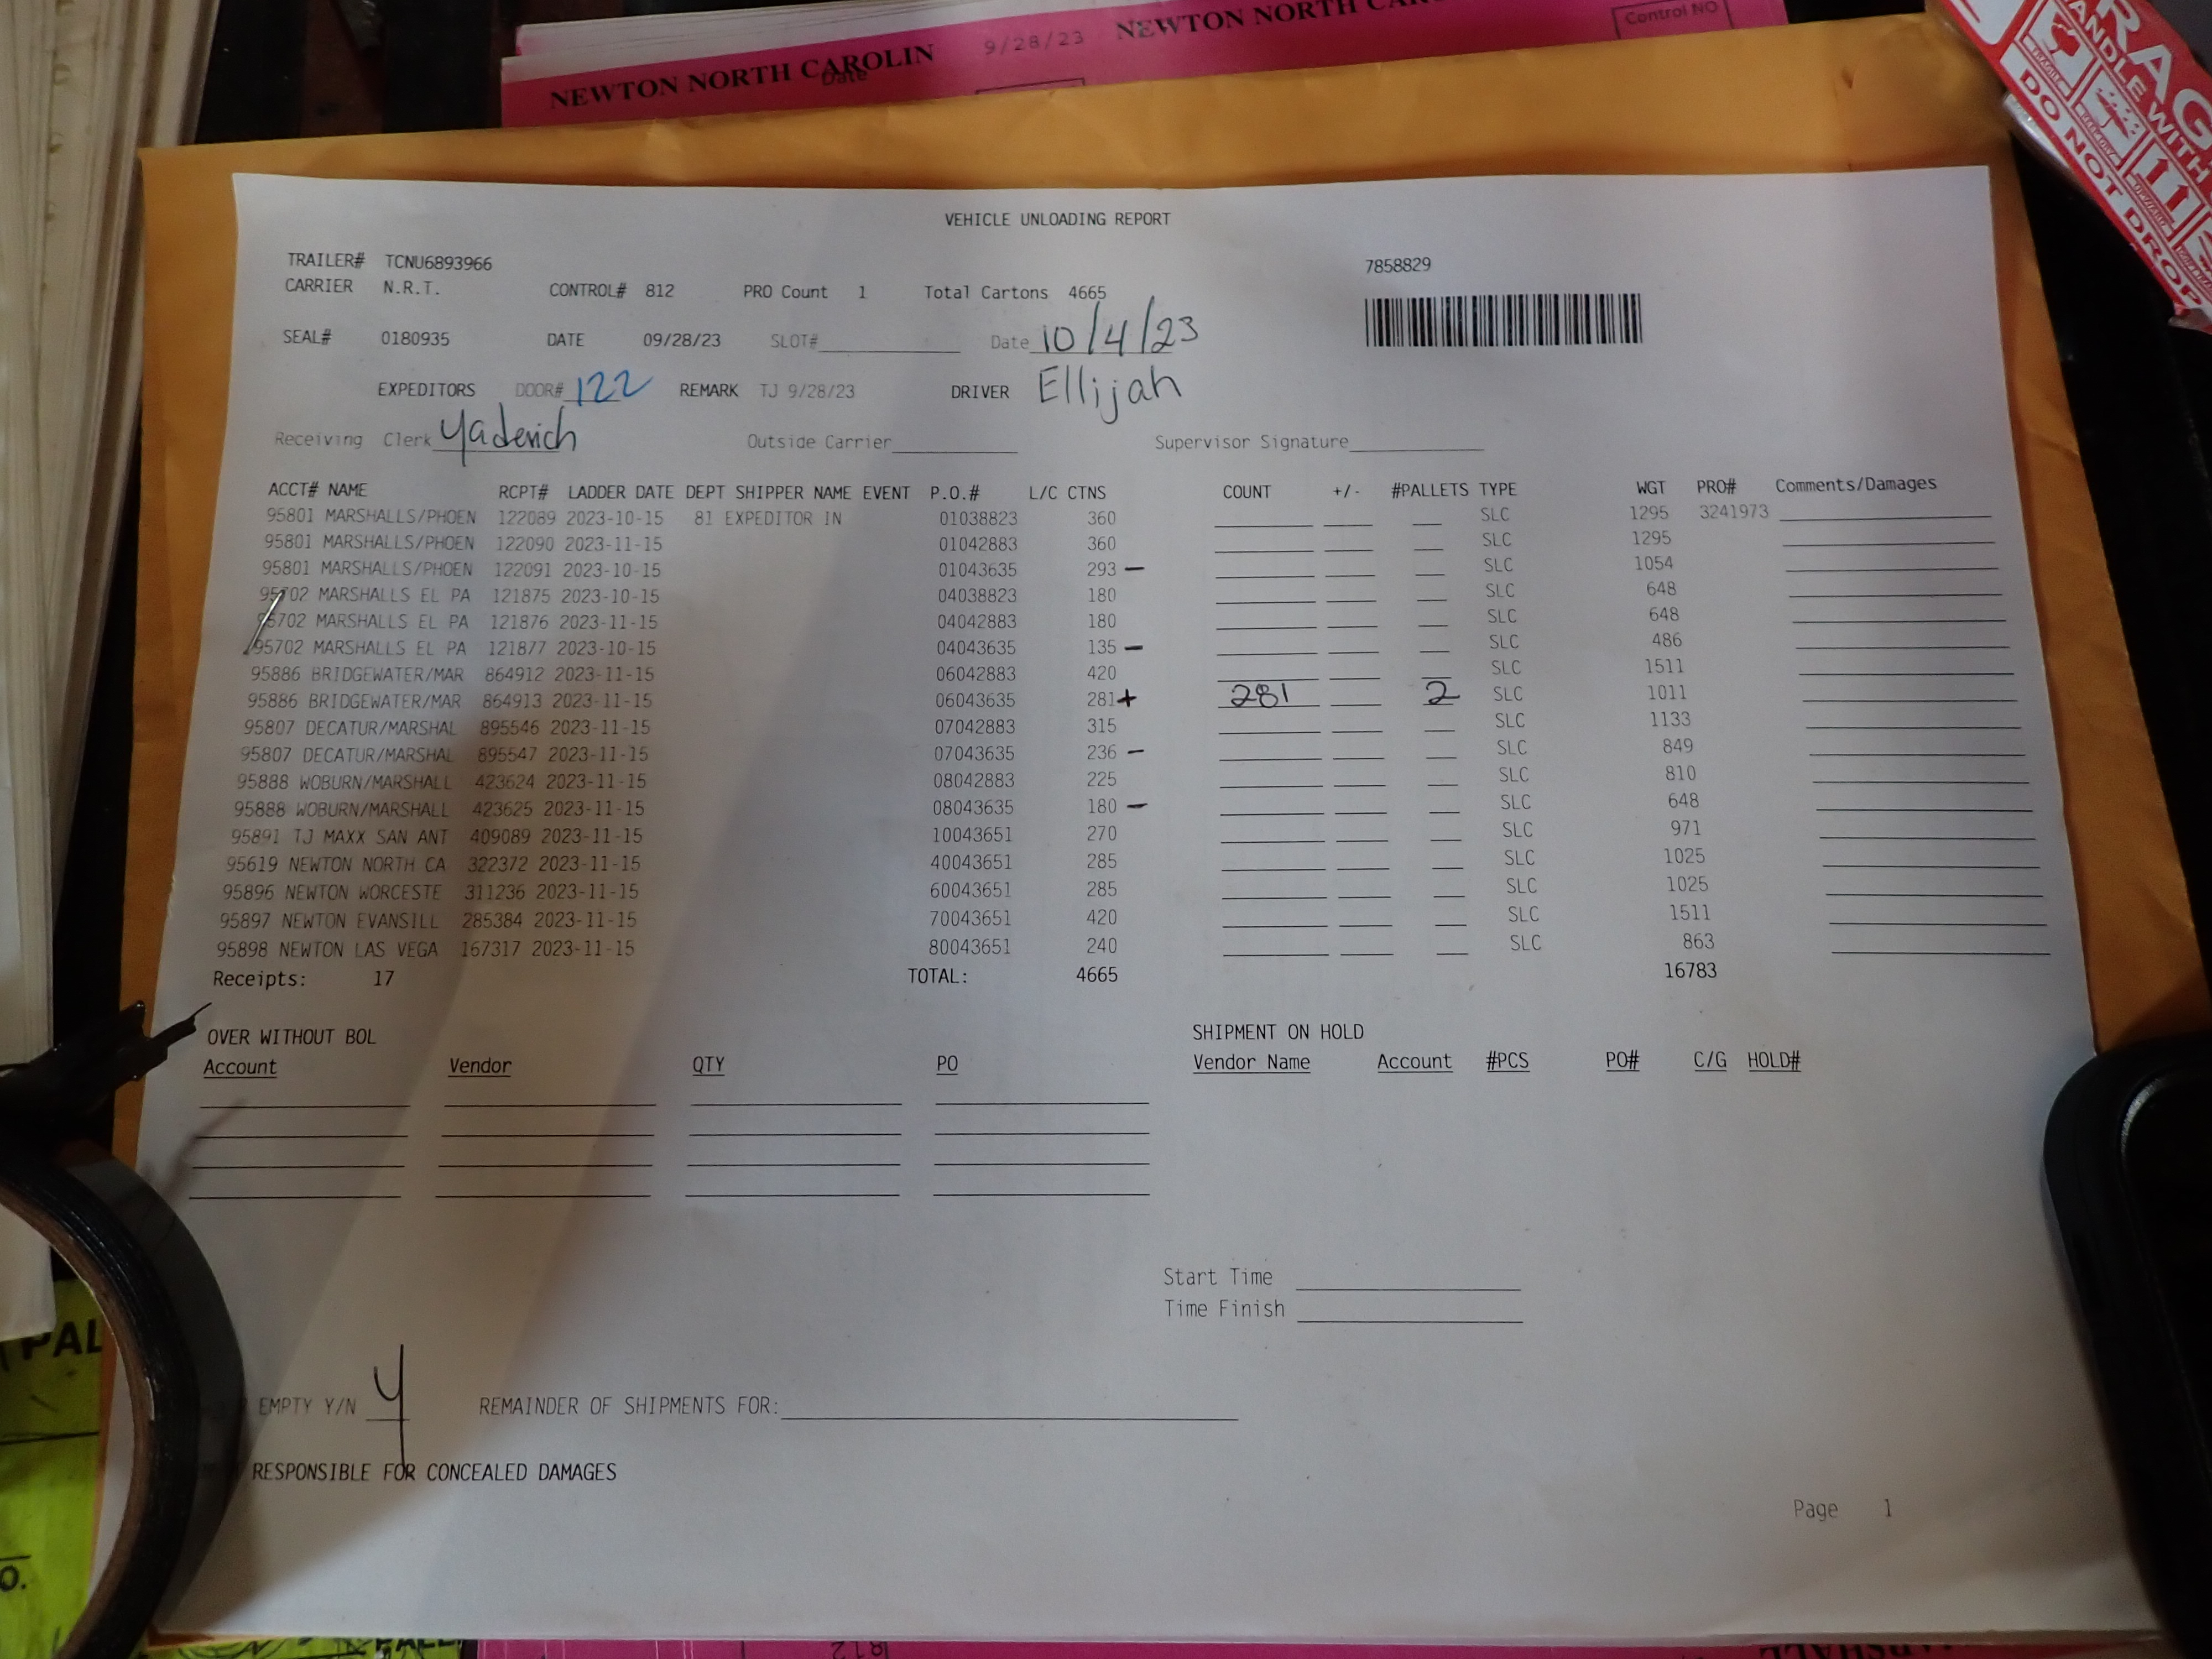 NEWTON NORTH CAROLIN 9/28/23 NEWTON NORTH
Date
Control NO
HANDLE WITH
DO NOT DROP
VEHICLE UNLOADING REPORT
TRAILER# TCNU6893966 7858829
CARRIER N.R.T. CONTROL# 812 PRO Count 1 Total Cartons 4665
SEAL# 0180935 DATE 09/28/23 SLOT# Date 10/4/23
EXPEDITORS DOOR# 122 REMARK TJ 9/28/23 DRIVER Ellijah
Receiving Clerk Yaderich Outside Carrier Supervisor Signature
ACCT# NAME RCPT# LADDER DATE DEPT SHIPPER NAME EVENT P.O.# L/C CTNS COUNT +/- #PALLETS TYPE WGT PRO# Comments/Damages
95801 MARSHALLS/PHOEN 122089 2023-10-15 81 EXPEDITOR IN 01038823 360 SLC 1295 3241973
95801 MARSHALLS/PHOEN 122090 2023-11-15 01042883 360 SLC 1295
95801 MARSHALLS/PHOEN 122091 2023-10-15 01043635 293 - SLC 1054
95702 MARSHALLS EL PA 121875 2023-10-15 04038823 180 SLC 648
95702 MARSHALLS EL PA 121876 2023-11-15 04042883 180 SLC 648
95702 MARSHALLS EL PA 121877 2023-10-15 04043635 135 - SLC 486
95886 BRIDGEWATER/MAR 864912 2023-11-15 06042883 420 SLC 1511
95886 BRIDGEWATER/MAR 864913 2023-11-15 06043635 281 + 281 2 SLC 1011
95807 DECATUR/MARSHAL 895546 2023-11-15 07042883 315 SLC 1133
95807 DECATUR/MARSHAL 895547 2023-11-15 07043635 236 - SLC 849
95888 WOBURN/MARSHALL 423624 2023-11-15 08042883 225 SLC 810
95888 WOBURN/MARSHALL 423625 2023-11-15 08043635 180 - SLC 648
95891 TJ MAXX SAN ANT 409089 2023-11-15 10043651 270 SLC 971
95619 NEWTON NORTH CA 322372 2023-11-15 40043651 285 SLC 1025
95896 NEWTON WORCESTE 311236 2023-11-15 60043651 285 SLC 1025
95897 NEWTON EVANSILL 285384 2023-11-15 70043651 420 SLC 1511
95898 NEWTON LAS VEGA 167317 2023-11-15 80043651 240 SLC 863
Receipts: 17 TOTAL: 4665 16783
OVER WITHOUT BOL SHIPMENT ON HOLD
Account Vendor QTY PO Vendor Name Account #PCS PO# C/G HOLD#
Start Time
Time Finish
EMPTY Y/N Y REMAINDER OF SHIPMENTS FOR:
RESPONSIBLE FOR CONCEALED DAMAGES
Page 1
812